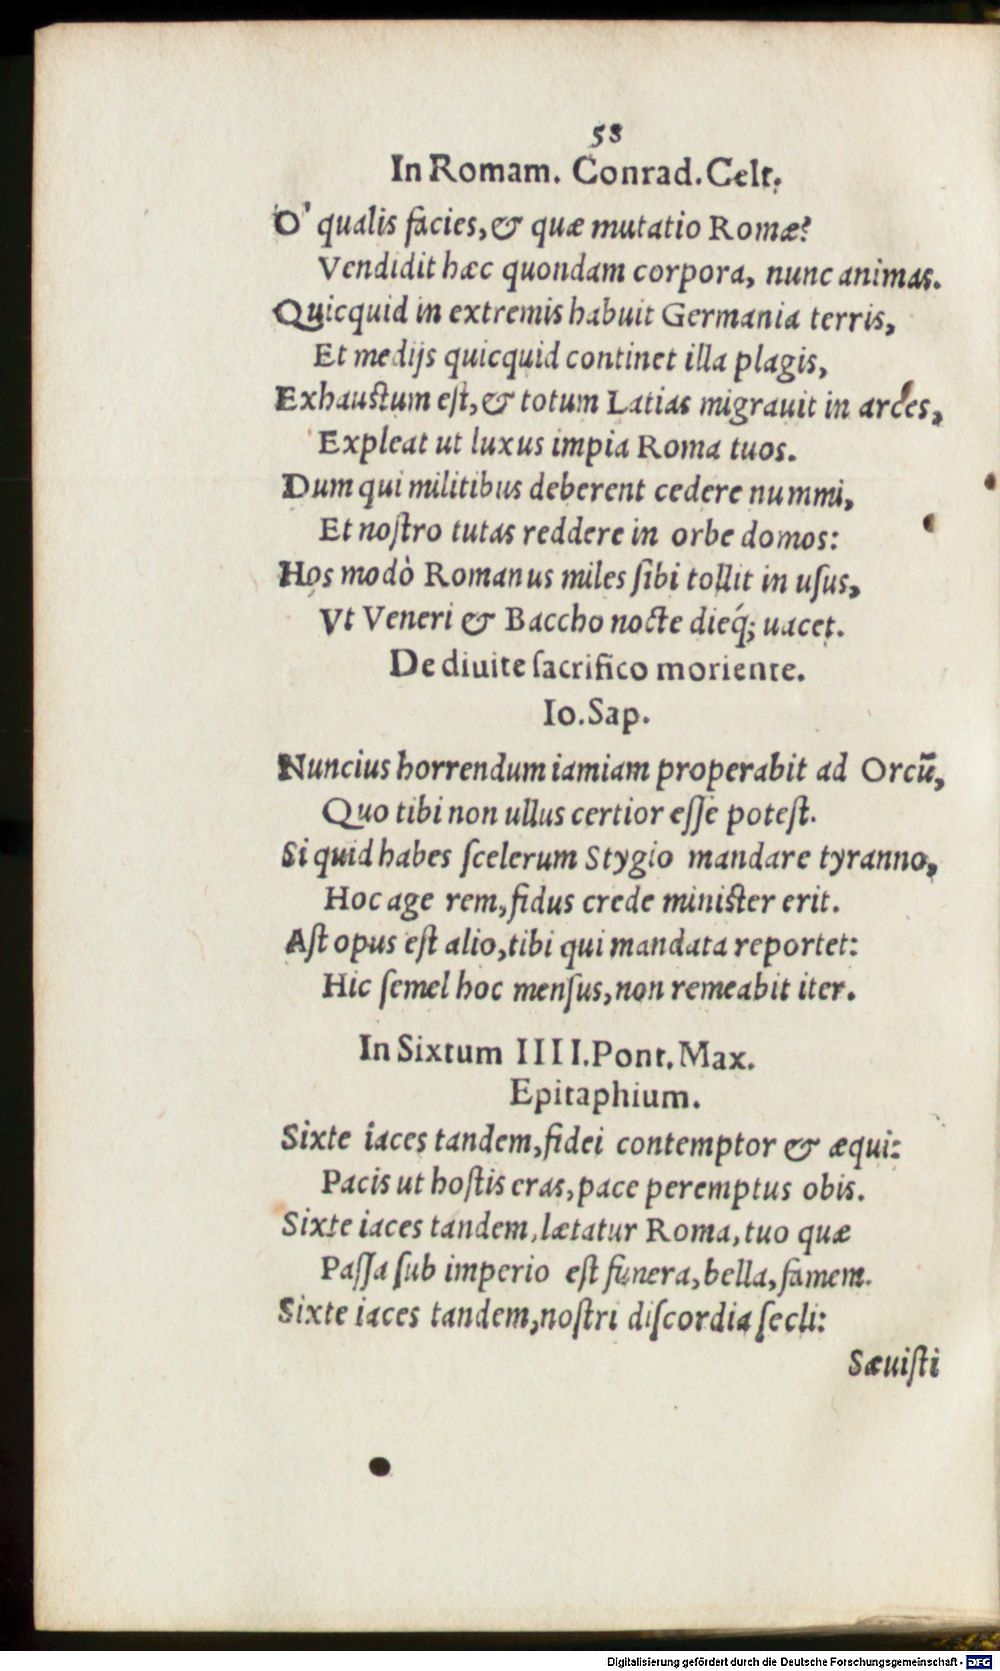 58
In Romam. Conrad. Celt.
O' qualis facies, & quæ mutatio Romæ?
Vendidit hæc quondam corpora, nunc animas.
Quicquid in extremis habuit Germania terris,
Et medijs quicquid continet illa plagis,
Exhaustum eſt, & totum Latias migrauit in arces,
Expleat ut luxus impia Roma tuos.
Dum qui militibus deberent cedere nummi,
Et noſtro tutas reddere in orbe domos:
Hos modò Romanus miles ſibi tollit in uſus,
Vt Veneri & Baccho nocte dieq́; uacet.
De diuite ſacrifico moriente.
Io. Sap.
Nuncius horrendum iamiam properabit ad Orcū,
Quo tibi non ullus certior eſſe poteſt.
Si quid habes ſcelerum Stygio mandare tyranno,
Hoc age rem, fidus crede minister erit.
Aſt opus eſt alio, tibi qui mandata reportet:
Hic ſemel hoc menſus, non remeabit iter.
In Sixtum IIII. Pont. Max.
Epitaphium.
Sixte iaces tandem, fidei contemptor & æqui:
Pacis ut hoſtis eras, pace peremptus obis.
Sixte iaces tandem, lætatur Roma, tuo quæ
Paſſa ſub imperio eſt funera, bella, famem.
Sixte iaces tandem, noſtri diſcordia ſecli:
Sæuiſti
Digitalisierung gefördert durch die Deutsche Forschungsgemeinschaft - DFG